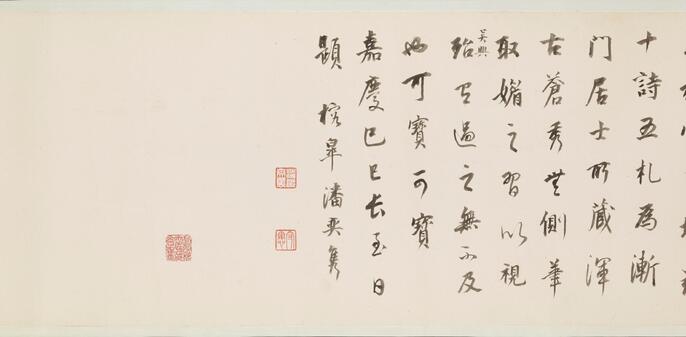 十詩五札為漸
門居士所藏渾
古蒼秀無側筆
取媚之習以視
吳興
殆有過之無不及
也可寶可寶
嘉慶己巳長至日
題 榕皋潘奕雋